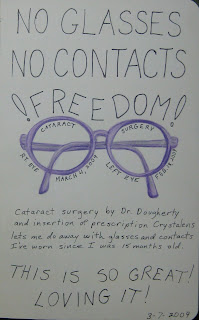 NO GLASSES
NO CONTACTS
!FREEDOM!
CATARACT SURGERY
RT EYE MARCH 4, 2009 LEFT EYE FEB 18, 2009
Cataract surgery by Dr. Dougherty
and insertion of prescription Crystalens
lets me do away with glasses and contacts
I've worn since I was 15 months old.
THIS IS SO GREAT!
LOVING IT!
3-7-2009